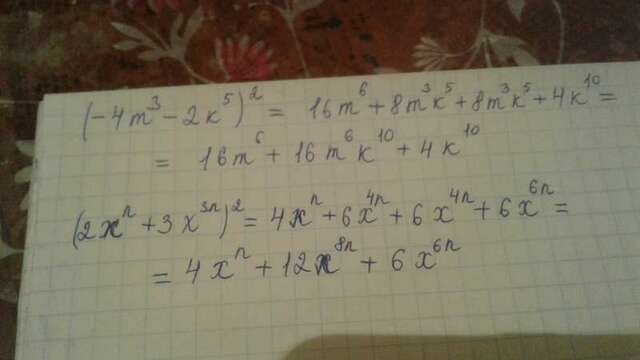 (-4m³ - 2k⁵)² = 16m⁶ + 8m³k⁵ + 8m³k⁵ + 4k¹⁰ =
= 16m⁶ + 16m⁶k¹⁰ + 4k¹⁰
(2xⁿ + 3x³ⁿ)² = 4xⁿ + 6x⁴ⁿ + 6x⁴ⁿ + 6x⁶ⁿ =
= 4xⁿ + 12x⁸ⁿ + 6x⁶ⁿ